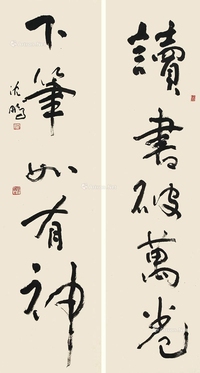 讀書破萬卷
下筆如有神
沈鵬